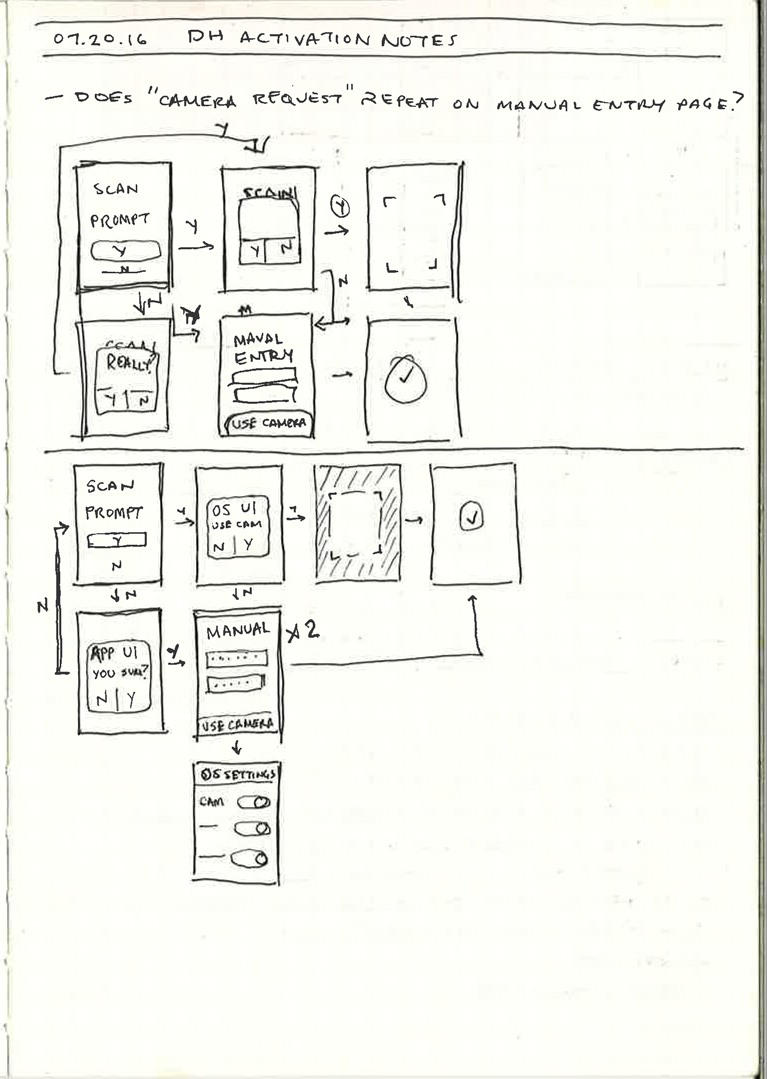 07.20.16 DH ACTIVATION NOTES
— DOES "CAMERA REQUEST" REPEAT ON MANUAL ENTRY PAGE?
Y
SCAN
PROMPT
Y
N
Y
SCAN
Y N
Y
N
N
REALLY?
Y N
MAVAL
ENTRY
USE CAMERA
SCAN
PROMPT
Y
N
Y
OS UI
USE CAM
N Y
Y
N
N
N
APP UI
YOU SURE?
N Y
Y
MANUAL
X2
USE CAMERA
OS SETTINGS
CAM